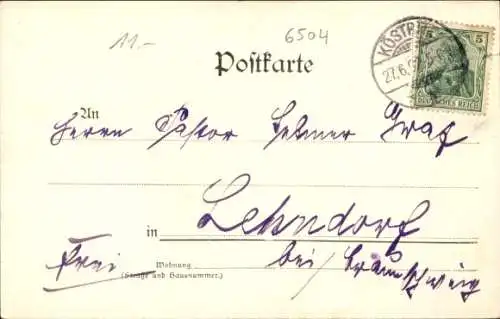 11.-
6504
Postkarte
KÖSTR
27.6.
5 5
DEUTSCHES REICH
An
Herrn Pastor Helmer Graf
in Lehndorf
Frei bei Braunschweig
Wohnung
(Straße und Hausnummer.)